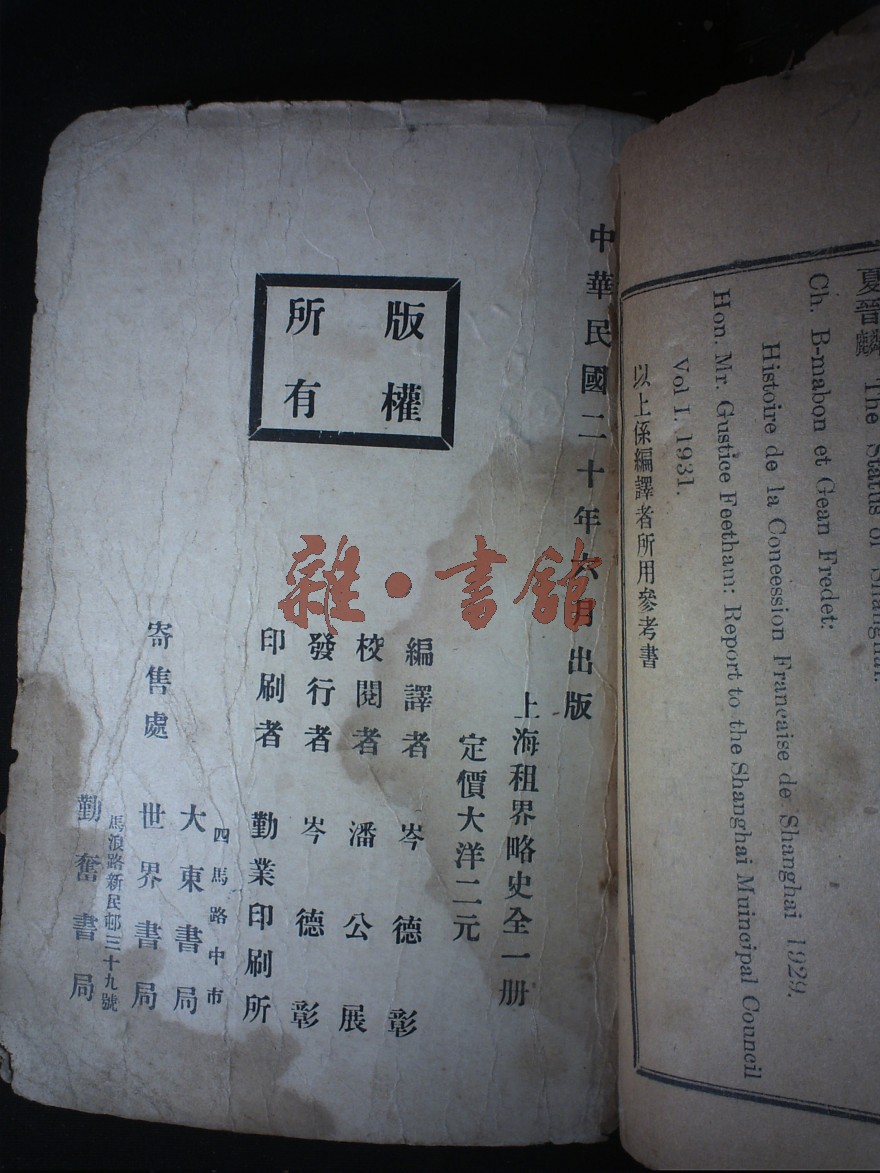 夏晉麟 The Status of Shanghai.
Ch. B-mabon et Gean Fredet:
Histoire de la Coneession Francaise de Shanghai 1929.
Hon. Mr. Gustice Feetham: Report to the Shanghai Muincipal Council
Vol I. 1931.
以上係編譯者所用參考書
中華民國二十年六月出版
上海租界略史全一册
定價大洋二元
版權
所有
編譯者 岑德彰
校閱者 潘公展
發行者 岑德彰
印刷者 勤業印刷所
四馬路中市
大東書局
寄售處 世界書局
馬浪路新民邨三十九號
勤奮書局
雜·書館